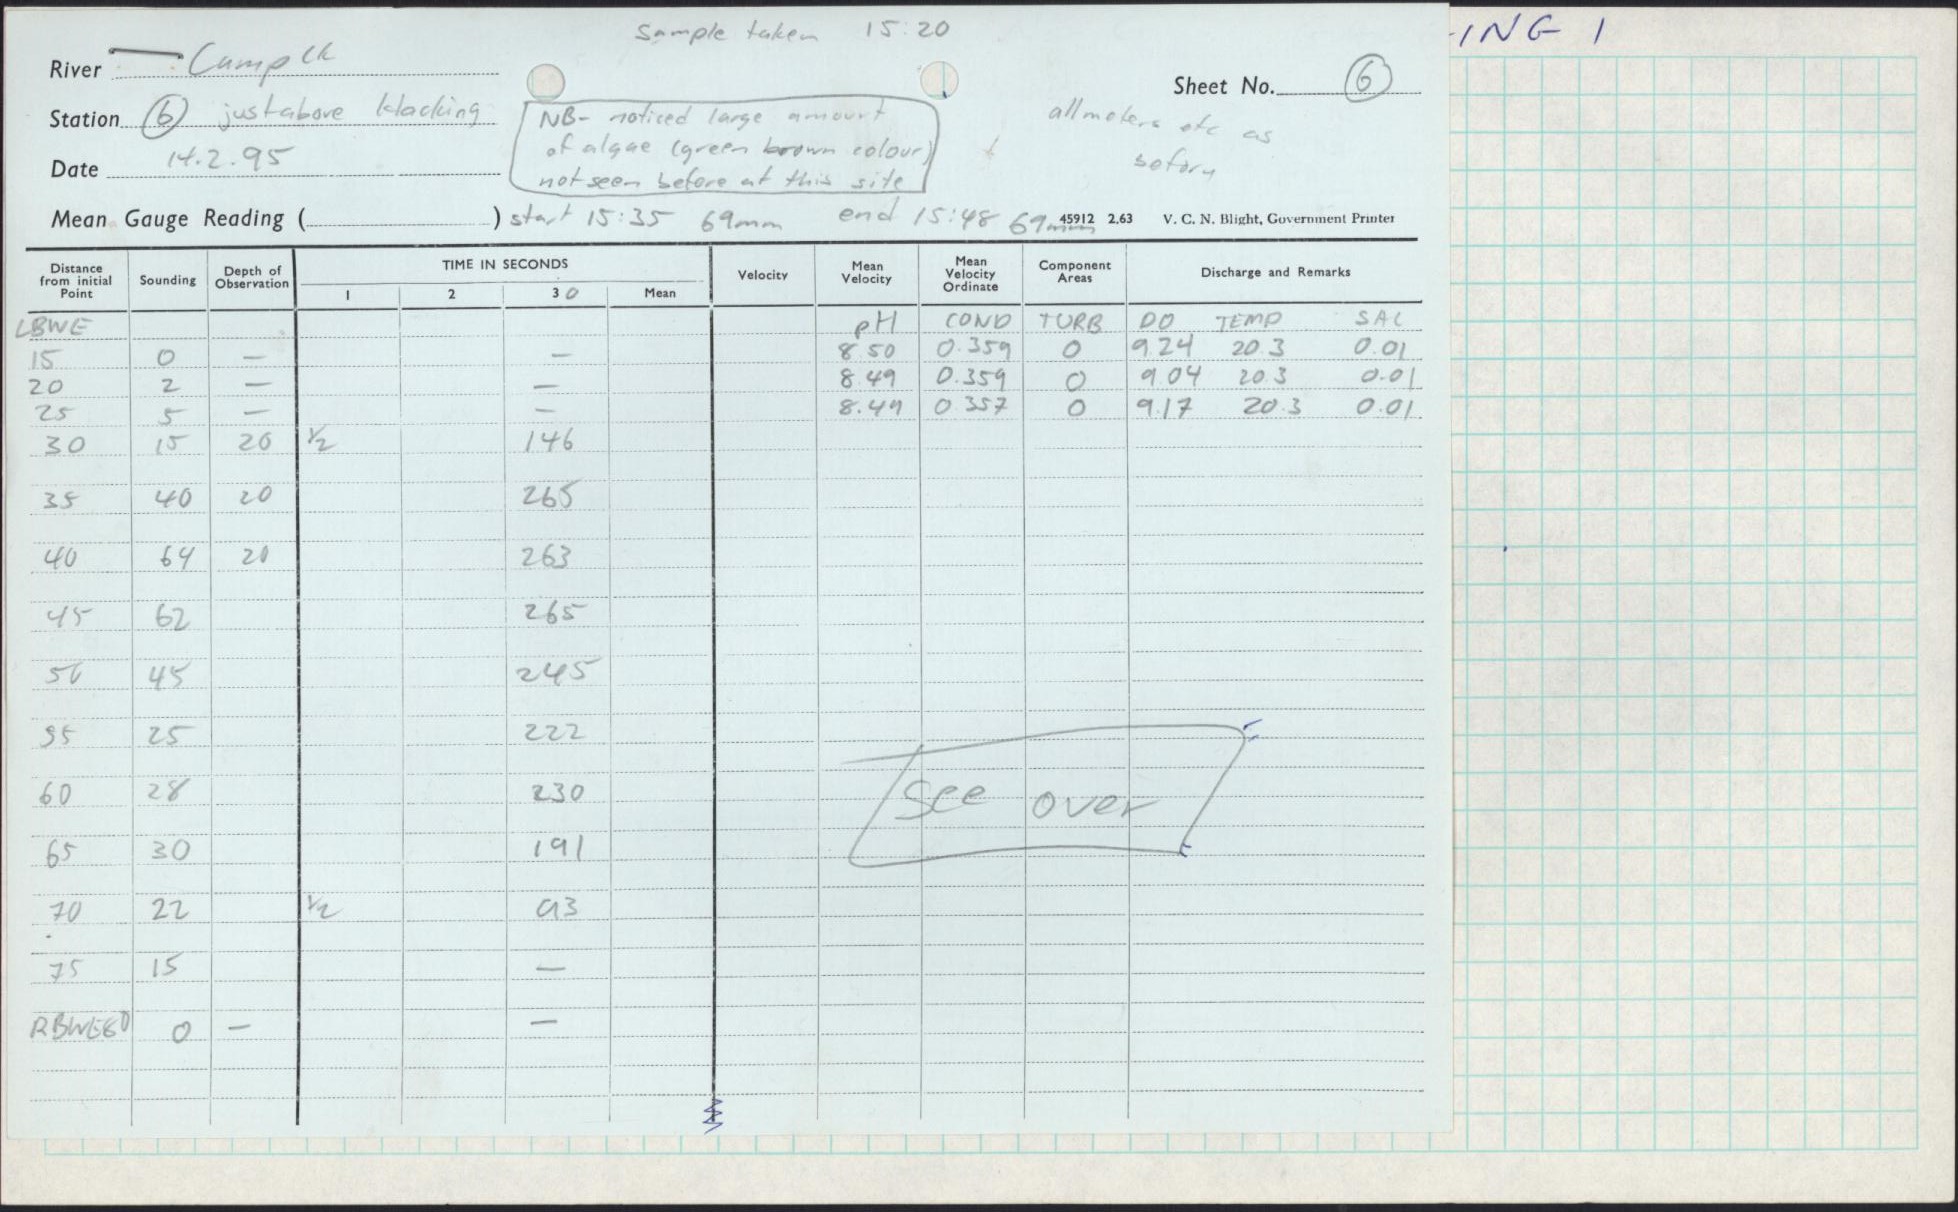 Sample taken 15:20
-ING 1
River Camp Ck
Sheet No. 6
Station 6 just above blocking
NB- noticed large amount
of algae (green brown colour)
not seen before at this site
all meters etc as
before
Date 14.2.95
Mean Gauge Reading ( ) start 15:35 69mm end 15:48 69mm 45912 2.63 V. C. N. Blight, Government Printer
Distance from initial Point Sounding Depth of Observation TIME IN SECONDS Velocity Mean Velocity Mean Velocity Ordinate Component Areas Discharge and Remarks
1 2 30 Mean
LBWE pH COND TURB DO TEMP SAL
15 0 — — 8.50 0.359 0 9.24 20.3 0.01
20 2 — — 8.49 0.359 0 9.04 20.3 0.01
25 5 — — 8.49 0.357 0 9.17 20.3 0.01
30 15 20 1/2 146
35 40 20 265
40 64 20 263
45 62 265
50 45 245
55 25 222
60 28 230
see over
65 30 191
70 22 1/2 93
75 15 —
RBWE80 0 — —